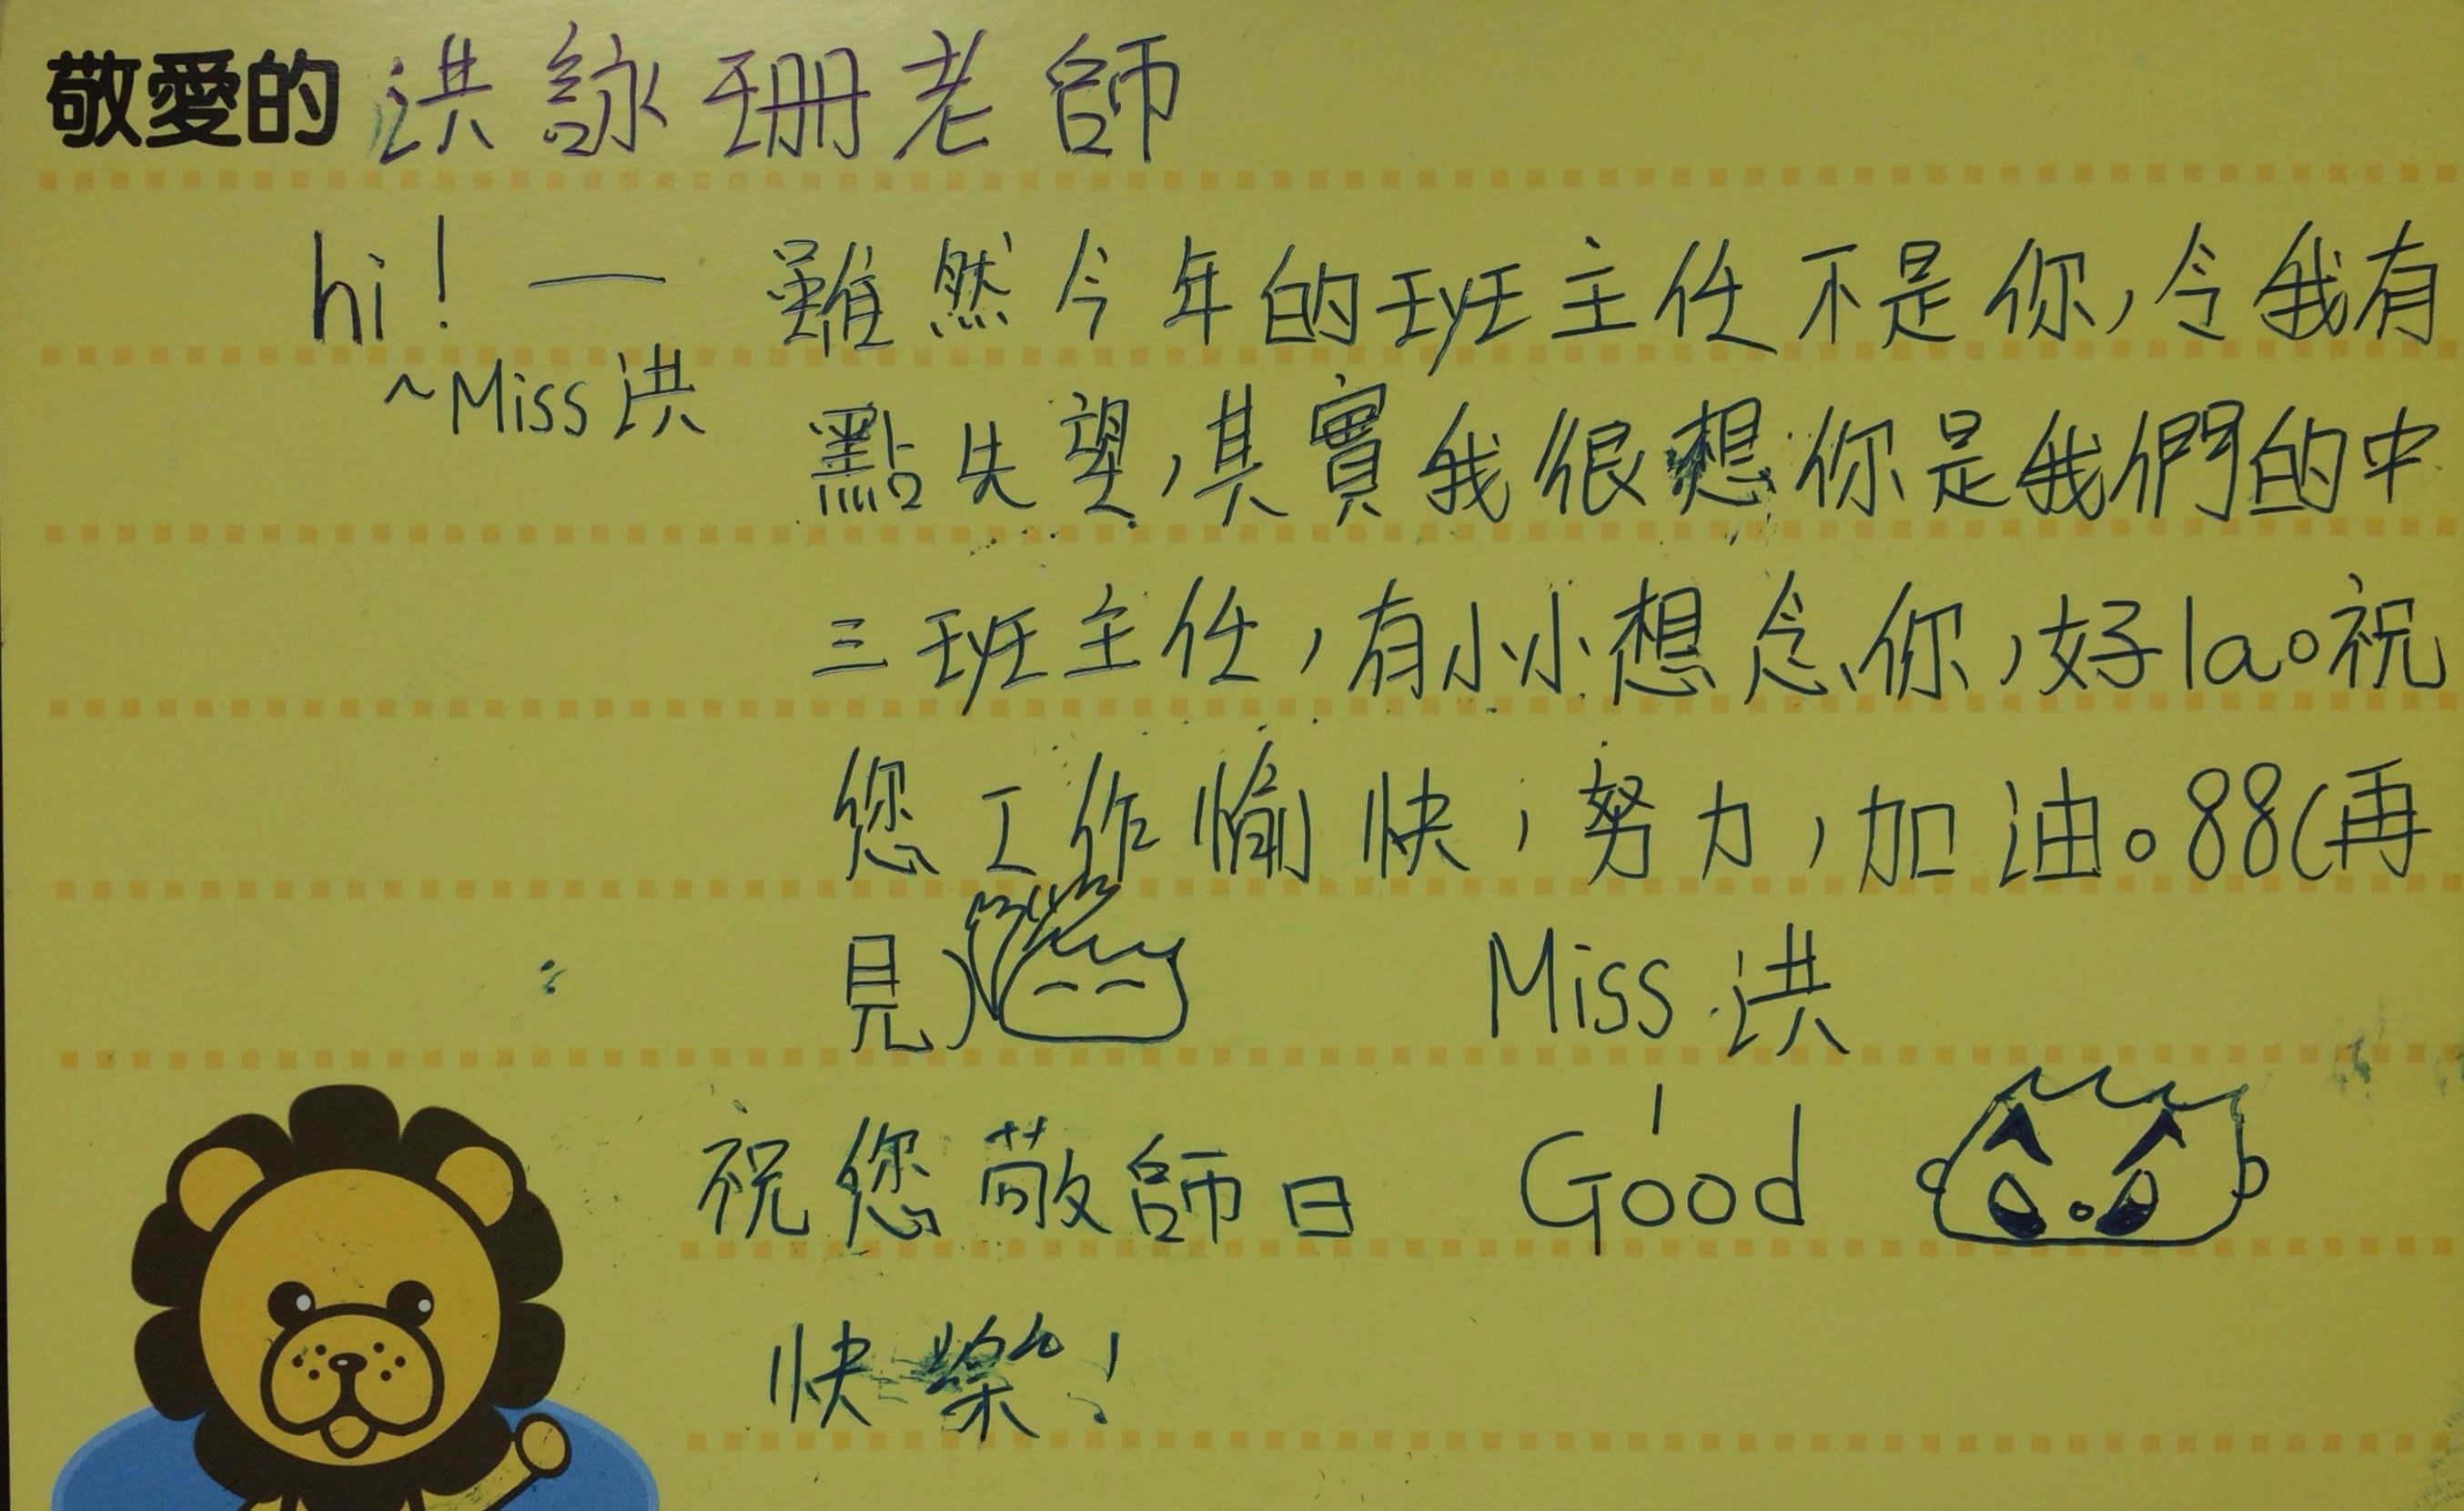 敬愛的洪詠珊老師
hi! — 雖然今年的班主任不是你,令我有
~Miss洪
點失望,其實我很想你是我們的中
三班主任,有小小想念你,好la。祝
您工作愉快,努力,加油。88(再
見) Miss 洪
祝您敬師日 Good
快樂!